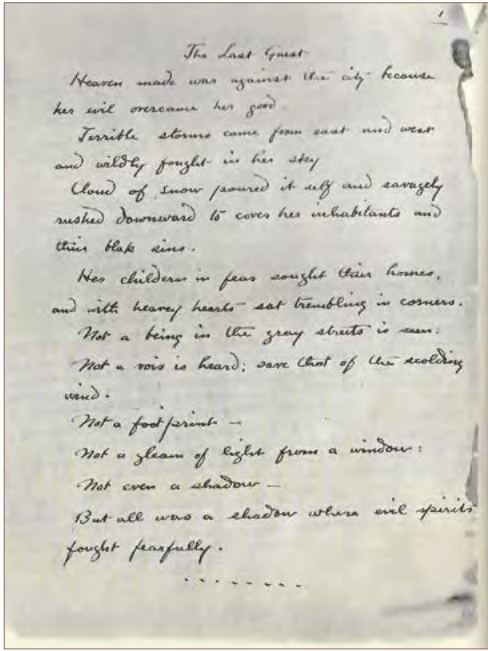 1
The Last Guest
Heaven made was against the city because
her evil overcame her good.
Terrible storms came from east and west
and wildly fought in her sky
Cloud of snow poured it self and savagely
rushed downward to cover her inhabitants and
thier blak sins.
Her childern in fear sought thier homes,
and with heavey hearts sat trembling in corners.
Not a being in the gray streets is seen:
Not a vois is heard; save that of the scolding
wind.
Not a foot print —
Not a gleam of light from a window:
Not even a shadow —
But all was a shadow where evil spirits
fought fearfully.
. . . . . . . .